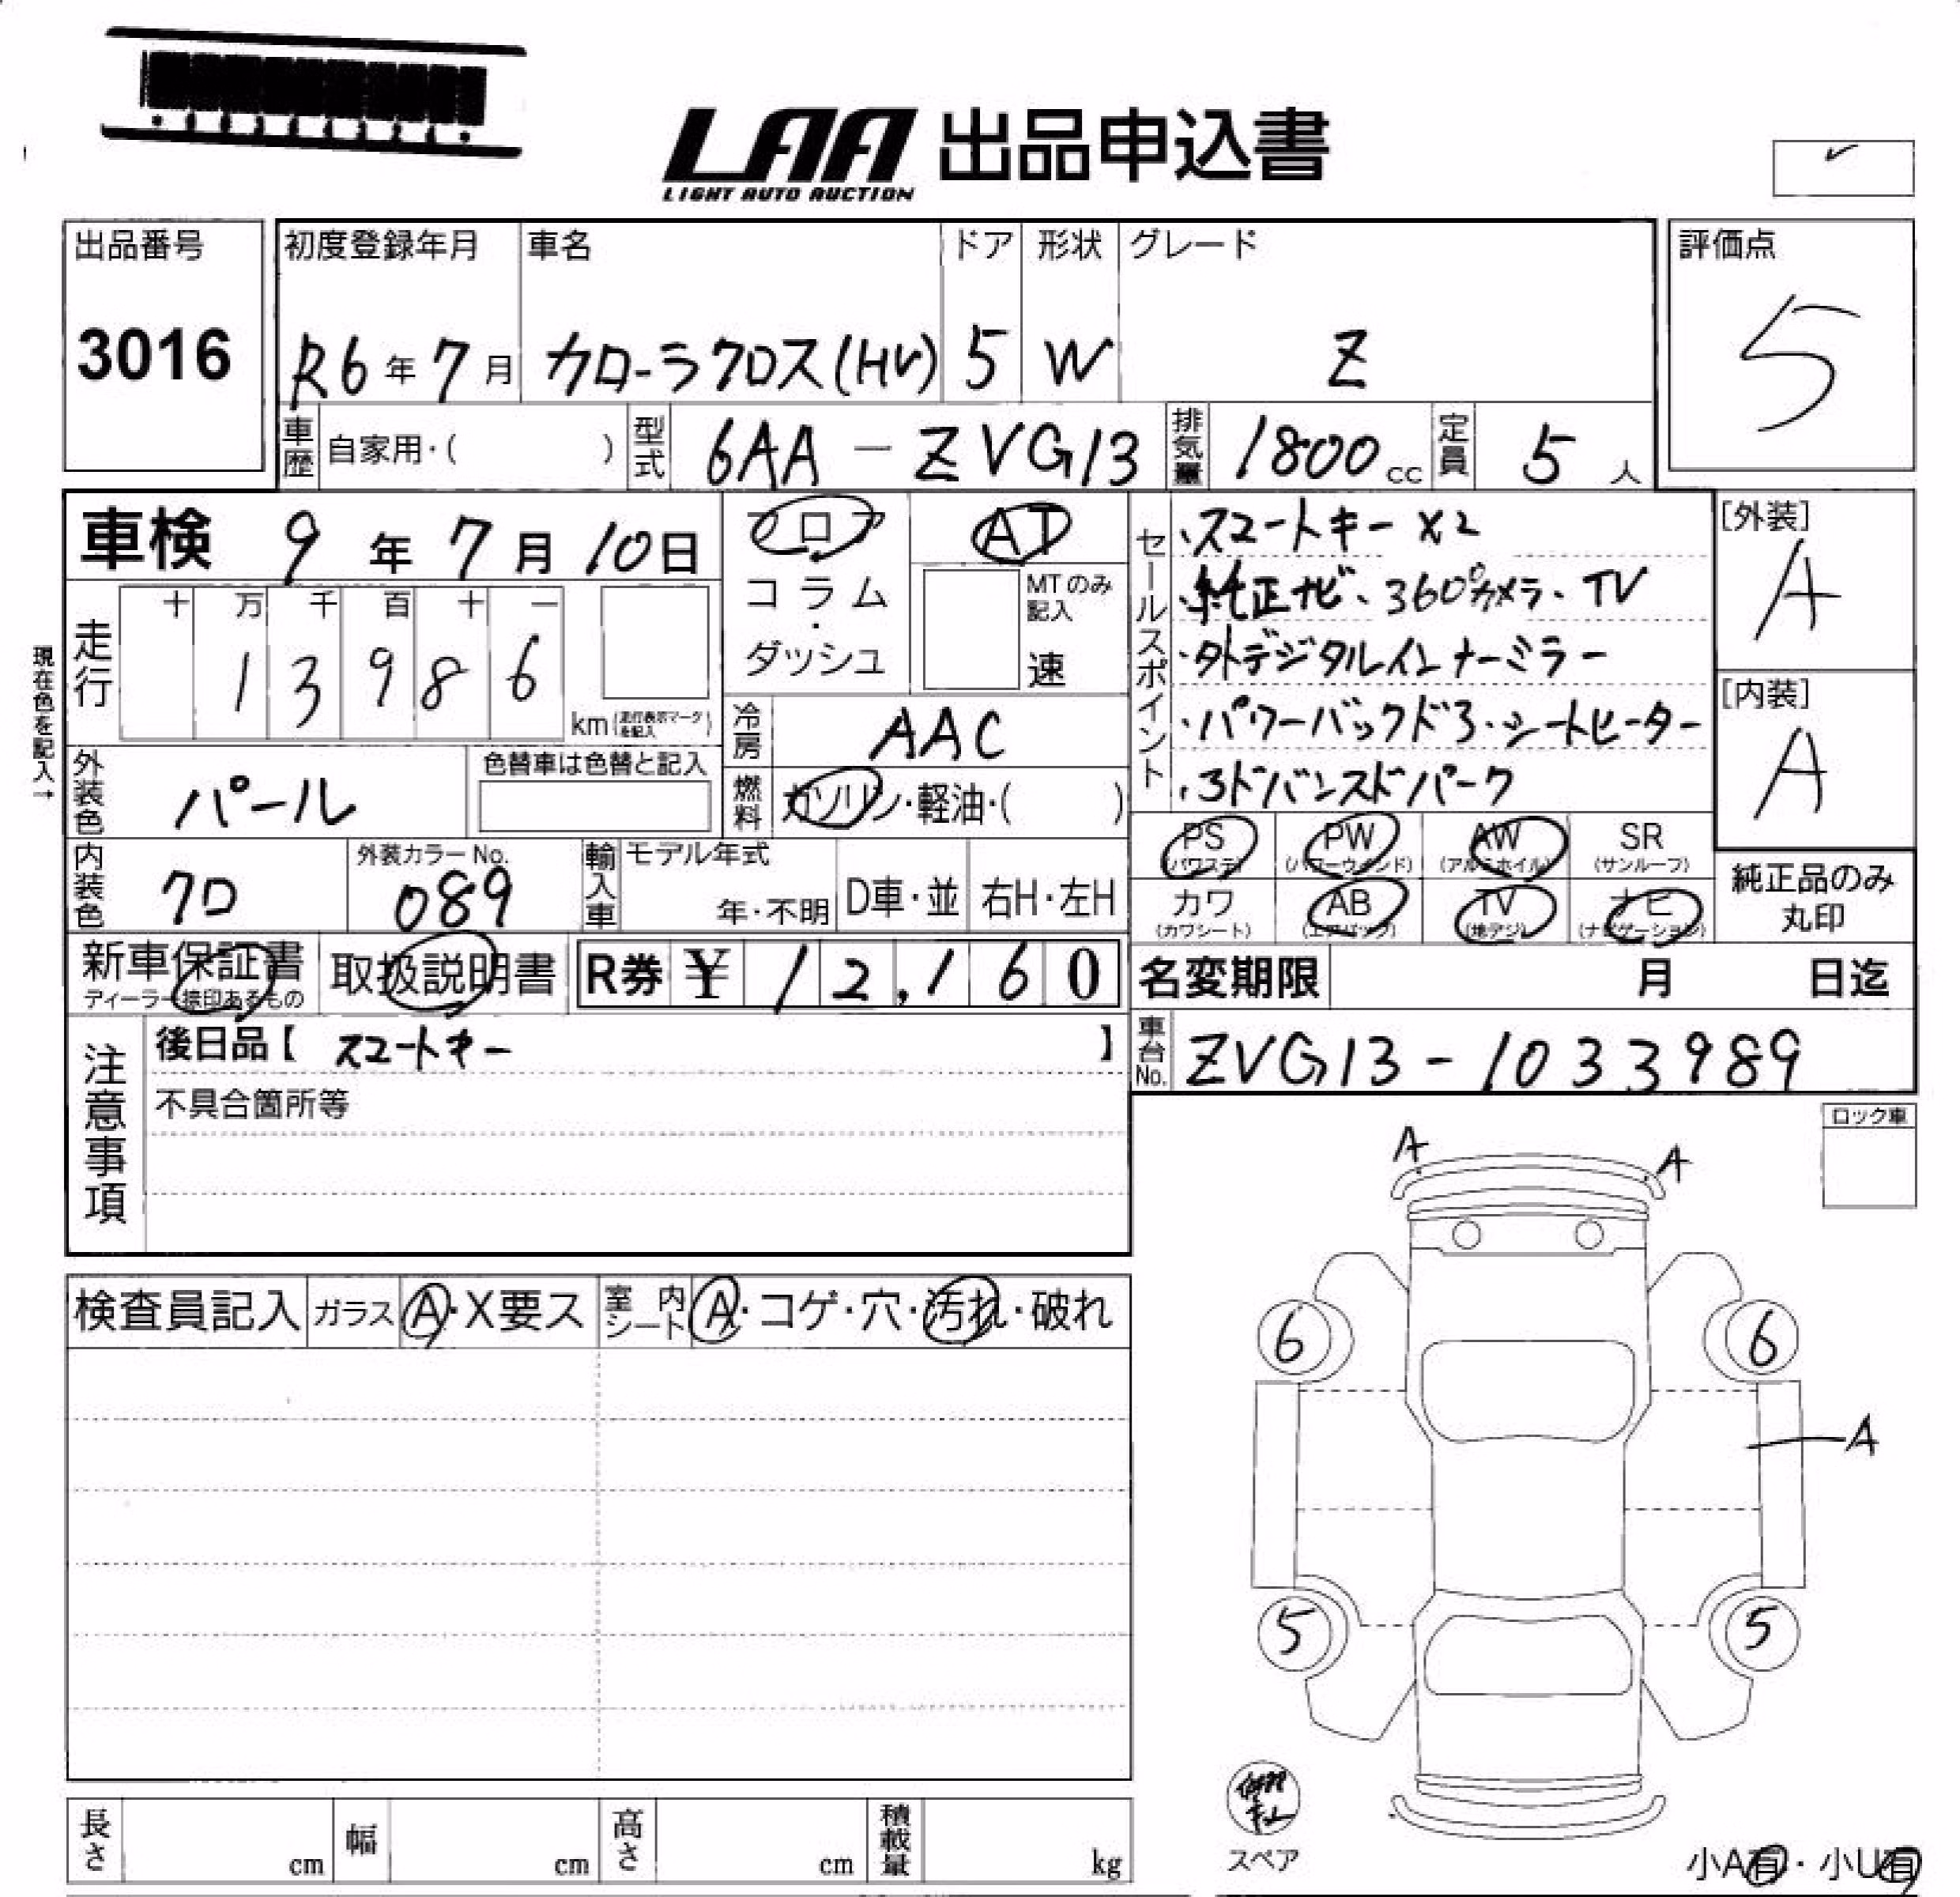 LAA 出品申込書
LIGHT AUTO AUCTION
出品番号
3016
初度登録年月
R6年7月
車名
カローラクロス(HV)
ドア
5
形状
W
グレード
Z
評価点
5
車歴 自家用・( )
型式 6AA-ZVG13
排気量 1800cc
定員 5人
車検 9年7月10日
フロア
コラム
・
ダッシュ
AT
MTのみ
記入
速
セールスポイント
・スマートキー X2
・純正ナビ、360°カメラ・TV
・デジタルインナーミラー
・パワーバックドア・シートヒーター
・アドバンスドパーク
[外装]
A
[内装]
A
現在色を記入→
走行
十 万 千 百 十 一
1 3 9 8 6
km(走行表示マークを記入)
冷房 AAC
外装色 パール
色替車は色替と記入
燃料 ガソリン・軽油・( )
内装色 クロ
外装カラーNo.
089
輸入車 モデル年式
年・不明
D車・並
右H・左H
PS (パワステ)
PW (パワーウインド)
AW (アルミホイル)
SR (サンルーフ)
カワ (カワシート)
AB (エアバック)
TV (地デジ)
ナビ (ナビゲーション)
純正品のみ
丸印
新車保証書
ディーラー捺印あるもの
取扱説明書
R券 ¥12,160
名変期限 月 日迄
注意事項
後日品【 スマートキー 】
不具合箇所等
車台No. ZVG13-1033989
ロック車
A
A
検査員記入
ガラス A・X要ス
室内シート A・コゲ・穴・汚れ・破れ
6
6
A
5
5
スペア
長さ cm
幅 cm
高さ cm
積載量 kg
小A有・小U有